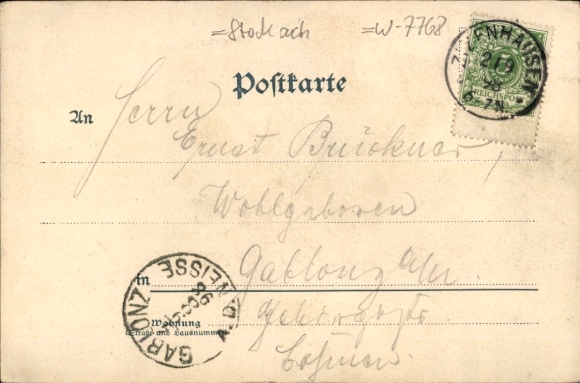 =Stockach =W-7768
Postkarte
ZIZENHAUSEN
21 9
98
6-7N.
REICHSPOST
An Herrn
Ernst Brückner,
Wohlgeboren
in Gablonz
Böhmen.
Wohnung
(Straße und Hausnummer)
GABLONZ A. D. NEISSE
98